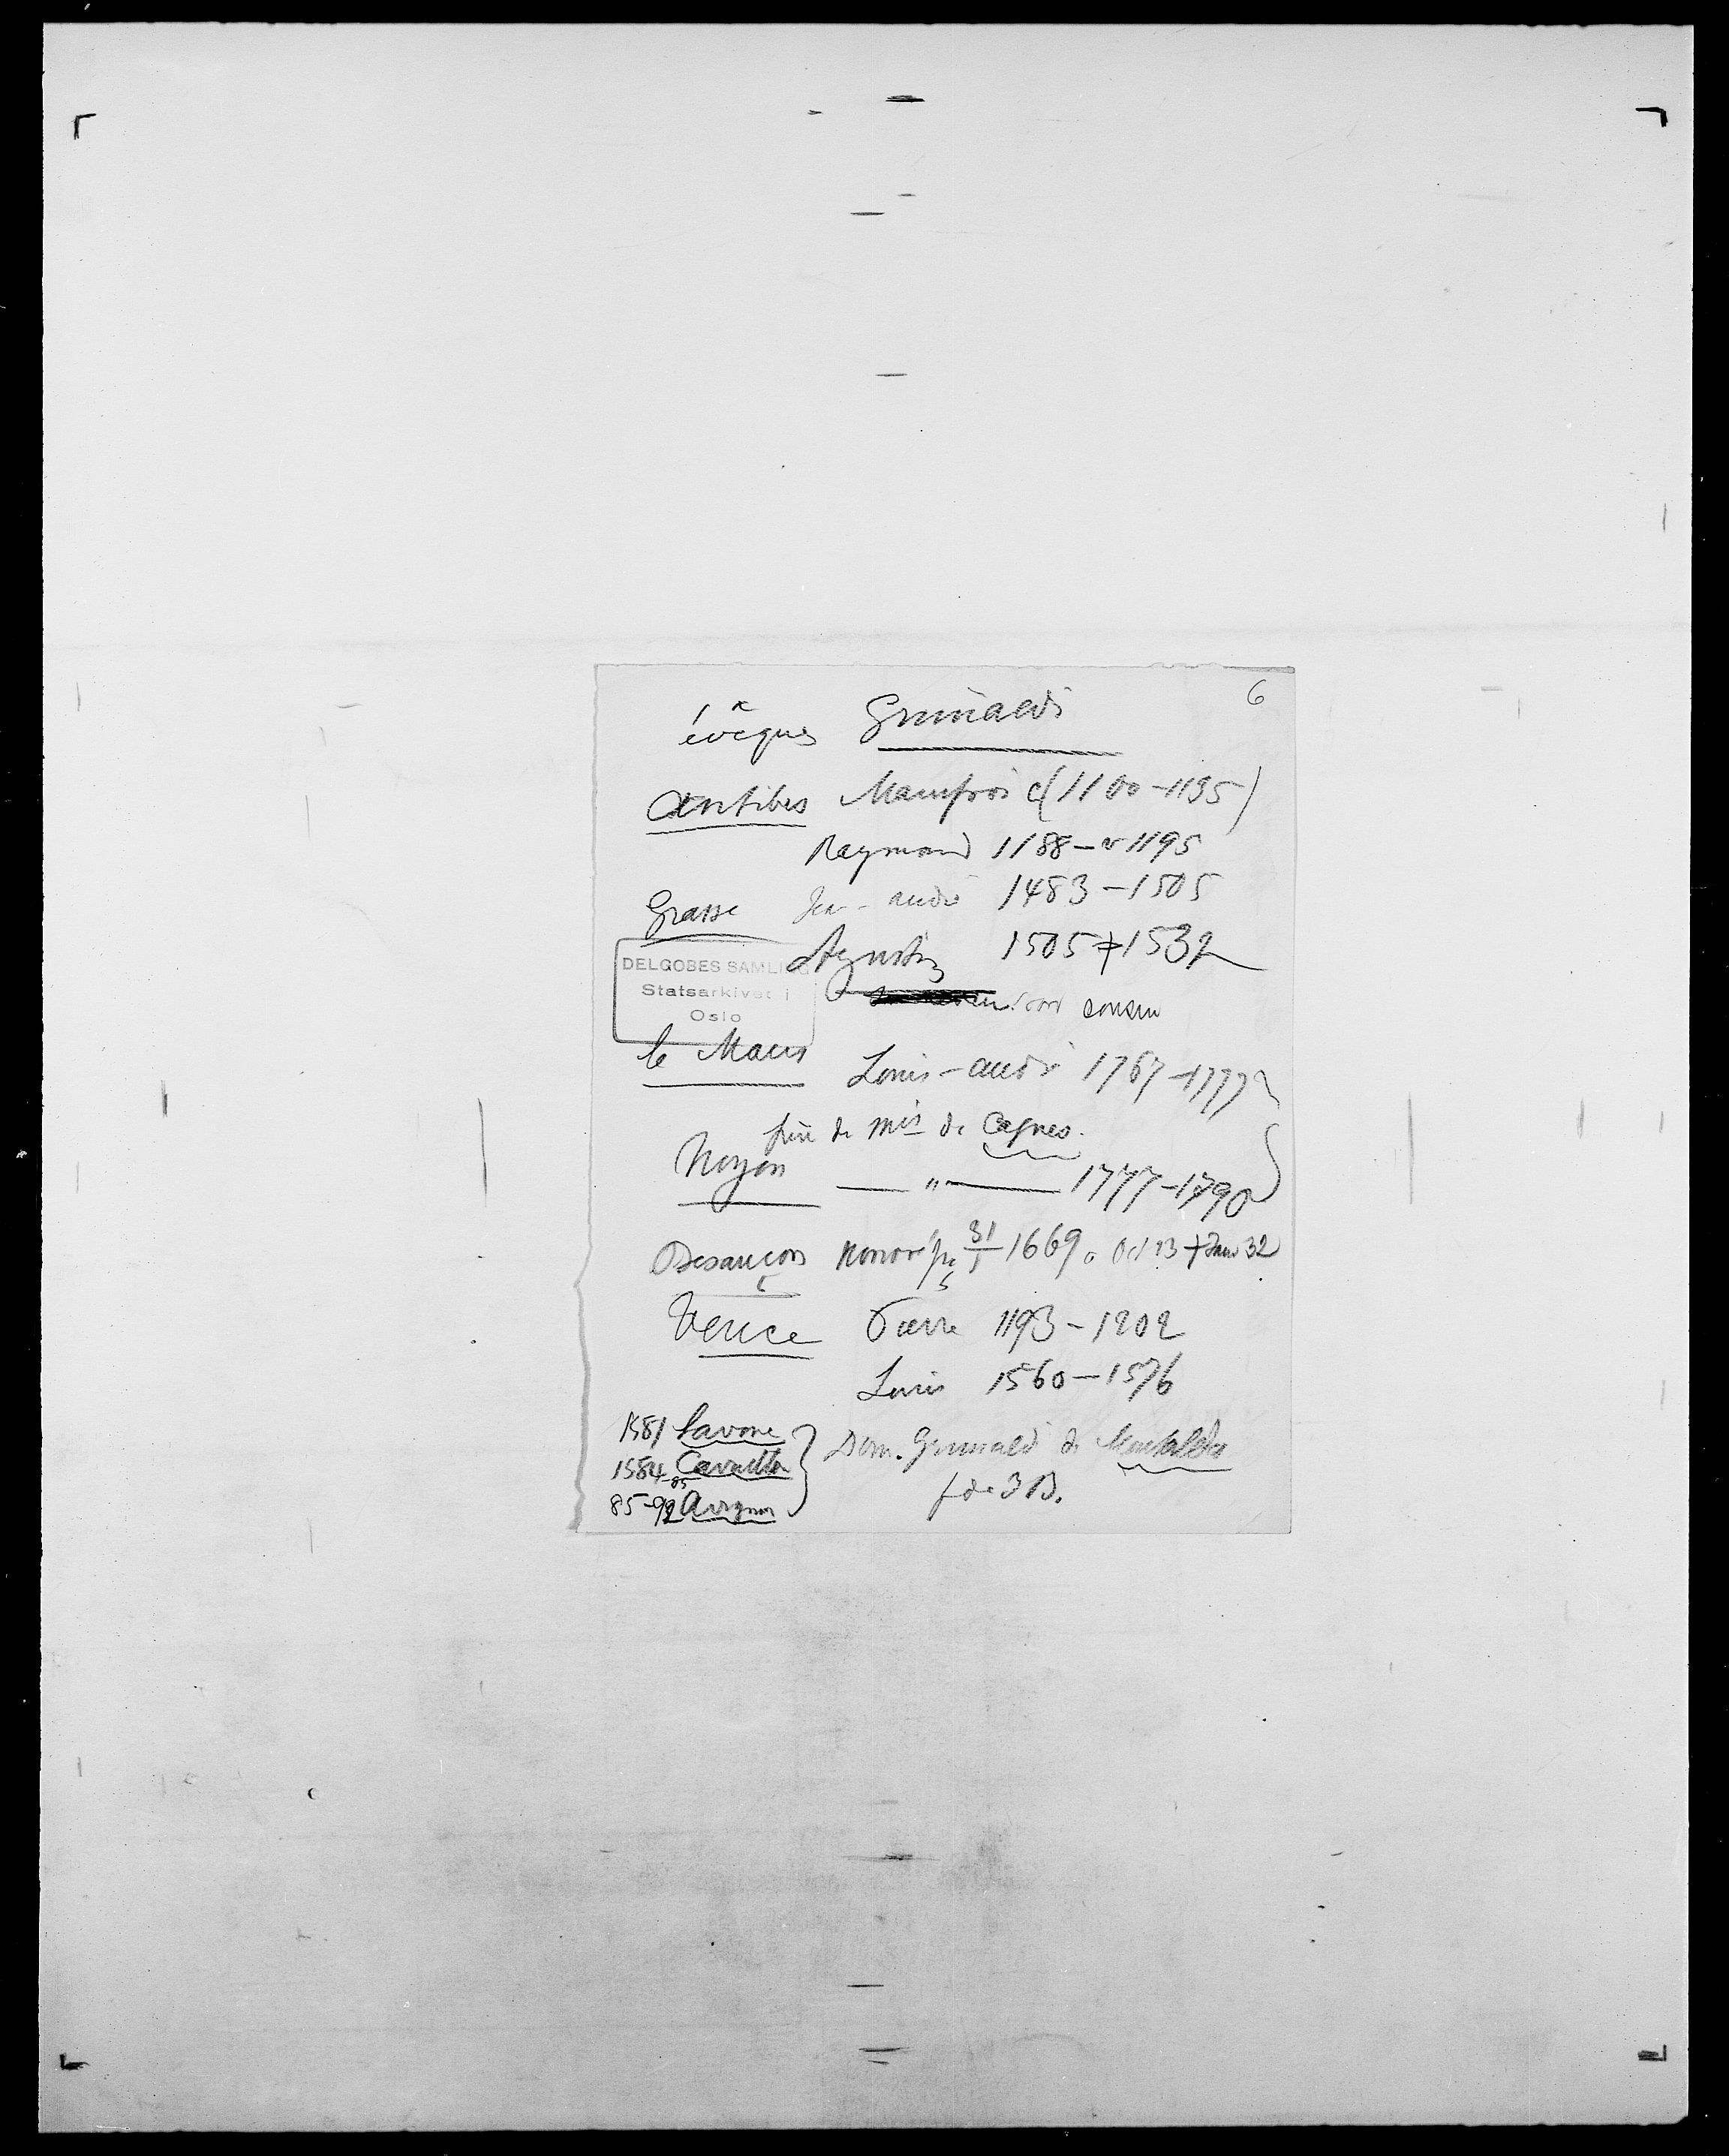 6
évêques Grimaldi
Antibes Mainfroi d (1100-1135)
Raymond 1188-v 1195
Grasse Jean-André 1483-1505
Agustin 1505 + 1532
son cousin
DELGOBES SAMLING
Statsarkivet i
Oslo
le Mans Louis-André 1767-1777
frère du Mis de Cagnes.
Noyon — " — 1777-1790
Besançon Honoré 31/1 1669, Oct 23 + Janv 32
Vence Pierre 1193-1202
Louis 1560-1576
1581 Savone
1584-85 Cavaillon Dom. Grimaldi de Montaldo
85-92 Avignon f de 3 B.